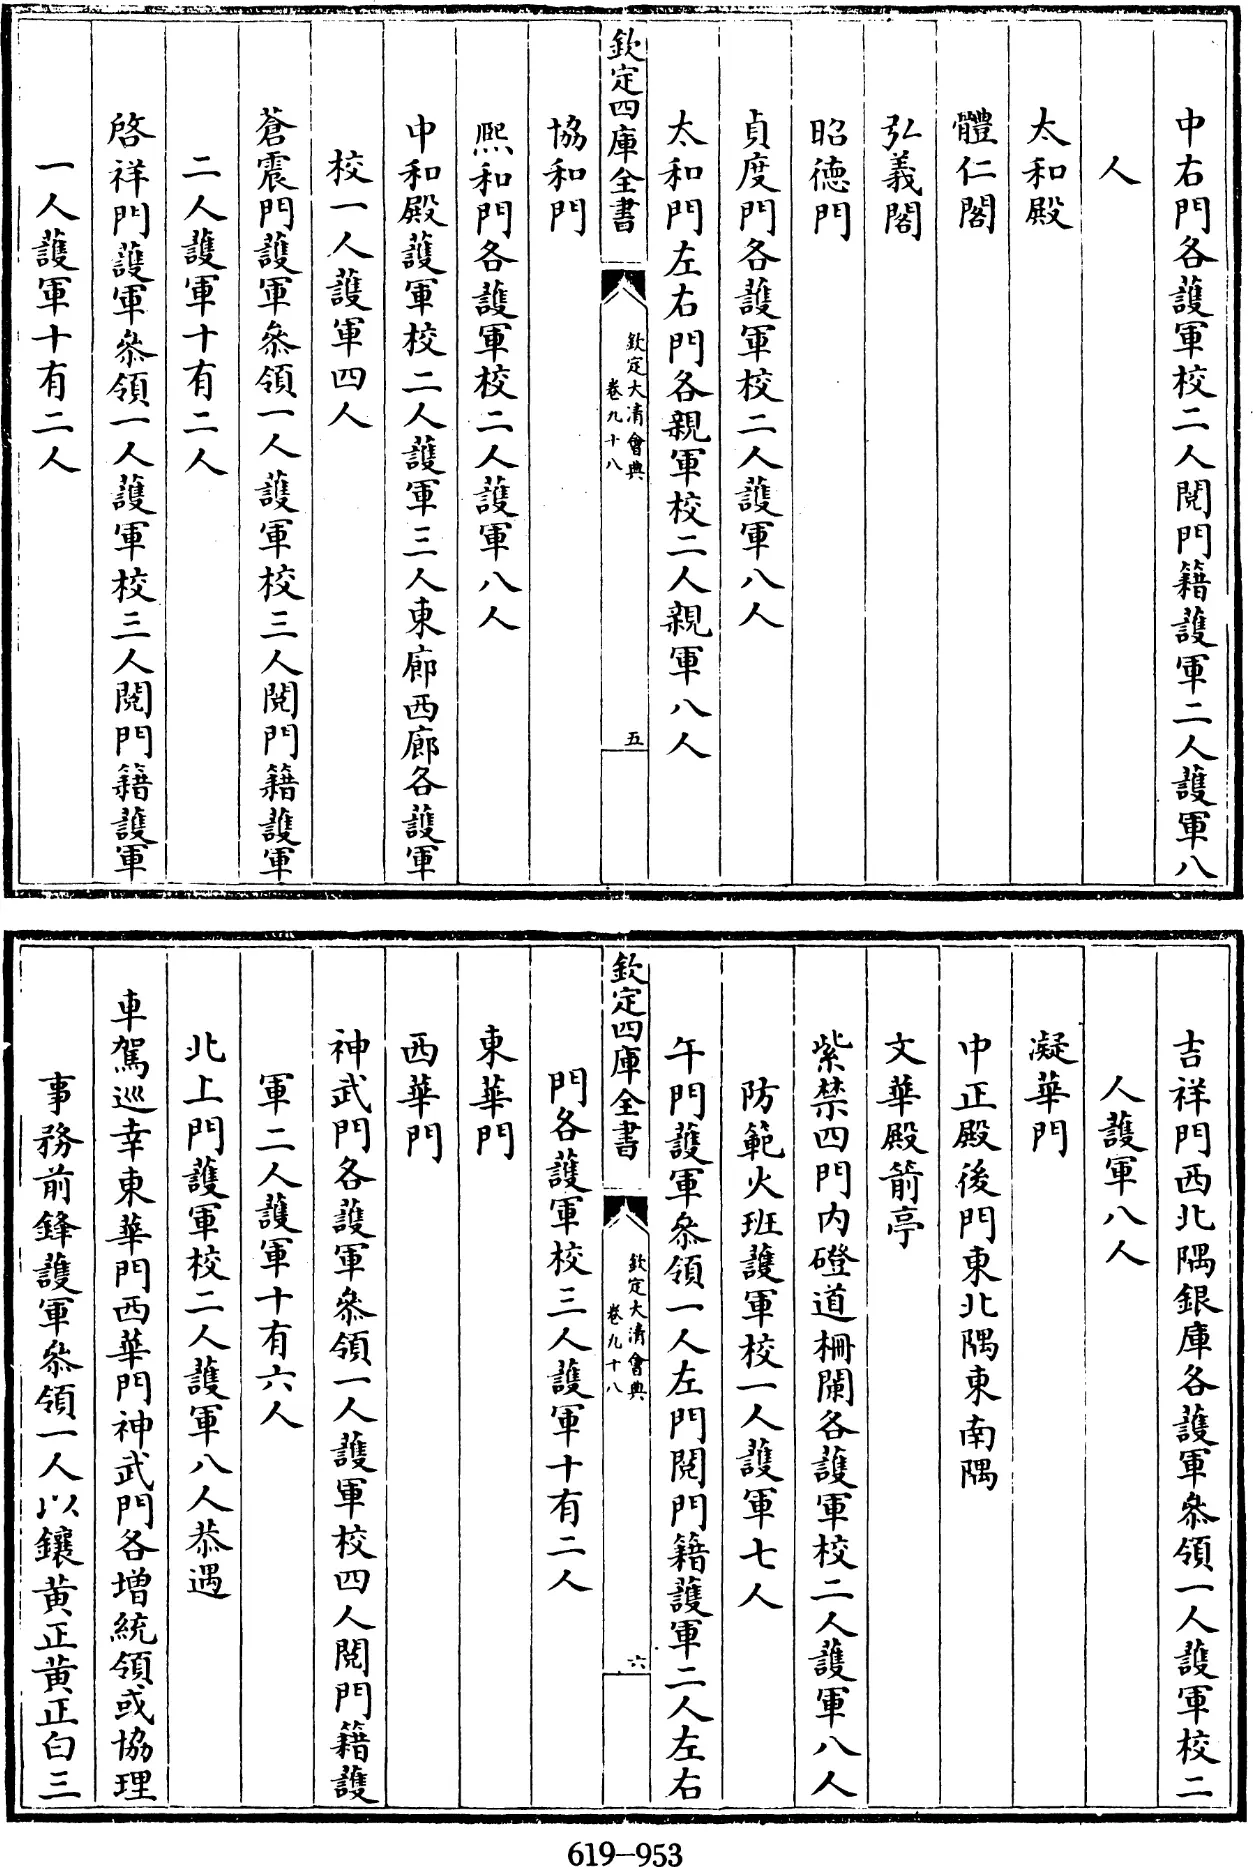 中右門各護軍校二人閱門籍護軍二人護軍八
人
太和殿
體仁閣
弘義閣
昭德門
貞度門各護軍校二人護軍八人
太和門左右門各親軍校二人親軍八人
欽定四庫全書
欽定大清會典
卷九十八
五
協和門
熙和門各護軍校二人護軍八人
中和殿護軍校二人護軍三人東廊西廊各護軍
校一人護軍四人
蒼震門護軍叅領一人護軍校三人閱門籍護軍
二人護軍十有二人
啓祥門護軍叅領一人護軍校三人閱門籍護軍
一人護軍十有二人
吉祥門西北隅銀庫各護軍叅領一人護軍校二
人護軍八人
凝華門
中正殿後門東北隅東南隅
文華殿箭亭
紫禁四門内磴道柵闌各護軍校二人護軍八人
防範火班護軍校一人護軍七人
午門護軍叅領一人左門閱門籍護軍二人左右
欽定四庫全書
欽定大清會典
卷九十八
六
門各護軍校三人護軍十有二人
東華門
西華門
神武門各護軍叅領一人護軍校四人閱門籍護
軍二人護軍十有六人
北上門護軍校二人護軍八人恭遇
車駕巡幸東華門西華門神武門各增統領或協理
事務前鋒護軍叅領一人以鑲黃正黃正白三
619-953